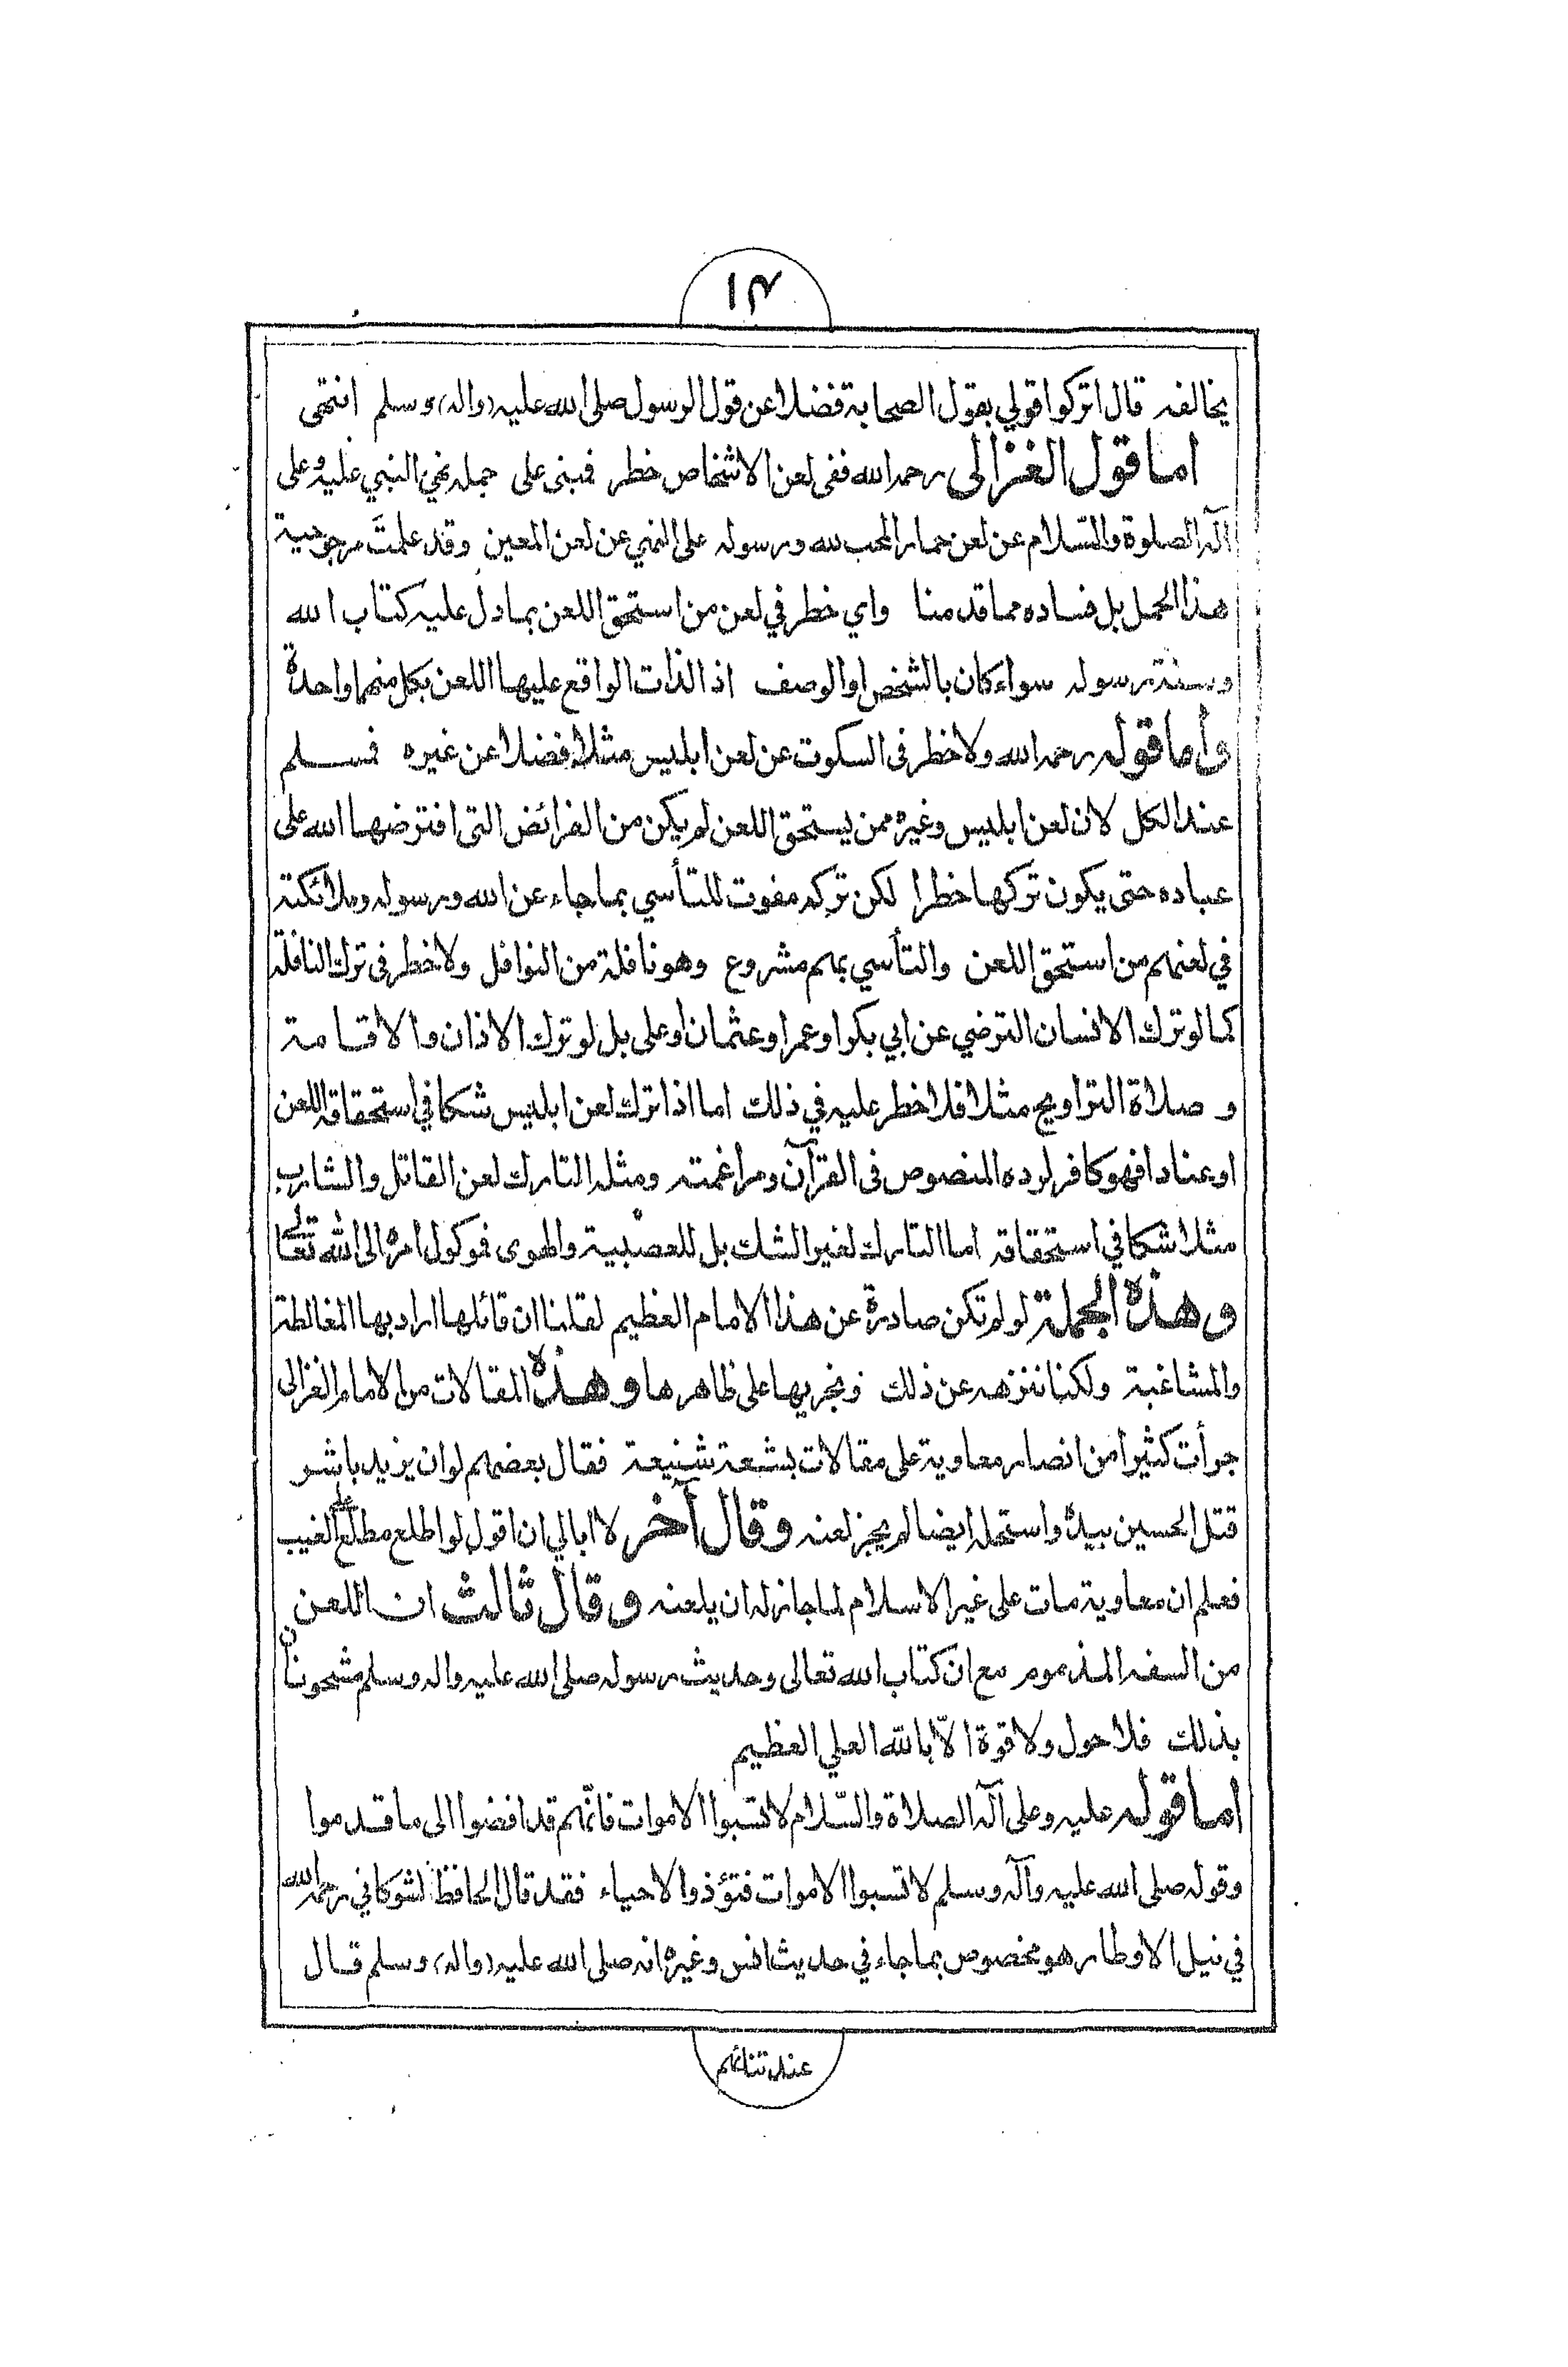 ١٤
يخالفه قال اتركوا قولي بقول الصحابة فضلا عن قول الرسول صلى الله عليه (واله) وسلم انتهى
اما قول الغزالى رحمه الله ففى لعن الاشخاص خطر فمبنى على حمله نهي النبي عليه وعلى
آله الصلوة والسّلام عن لعن حمار المحب لله ورسوله على النهي عن لعن المعين وقد علمتَ مرجوحية
هذا الحمل بل فساده مما قدمنا واي خطر في لعن من استحق اللعن بما دل عليه كتاب الله
وسنة رسوله سواء كان بالشخص او الوصف اذ الذات الواقع عليها اللعن بكل منهما واحدة
وأما قوله رحمه الله ولا خطر فى السكوت عن لعن ابليس مثلا فضلا عن غيره فمسلم
عند الكل لان لعن ابليس وغيره ممن يستحق اللعن لم يكن من الفرائض التى افترضها الله على
عباده حتى يكون تركها خطرا لكن تركه مفوت للتأسي بما جاء عن الله ورسوله وملائكته
في لعنهم من استحق اللعن والتأسي بهم مشروع وهو نافلة من النوافل ولا خطر فى ترك النافلة
كما لو ترك الانسان الترضي عن ابي بكر او عمر او عثمان او على بل لو ترك الاذان والاقامة
و صلاة التراويح مثلا فلا خطر عليه في ذلك اما اذا ترك لعن ابليس شكا في استحقاقه اللعن
او عنادا فهو كافر لرده المنصوص فى القرآن ومراغمته ومثله التارك لعن القاتل والشارب
مثلا شكا في استحقاقه اما التارك لغير الشك بل للعصبية والهوى فموكول امره الى الله تعالى
وهذه الجملة لو لم تكن صادرة عن هذا الامام العظيم لقلنا ان قائلها اراد بها المغالطة
والمشاغبة ولكنا ننزهه عن ذلك ونجريها على ظاهرها وهذه المقالات من الامام الغزالى
جرأت كثيرا من انصار معاوية على مقالات بشعة شنيعة فقال بعضهم لو ان يزيد باشر
قتل الحسين بيده واستحله ايضا لم يجز لعنه وقال آخر لا ابالي ان اقول لو اطلع مطلع على الغيب
فعلم ان معاوية مات على غير الاسلام لما جاز له ان يلعنه وقال ثالث ان اللعن
من السفه المذموم مع ان كتاب الله تعالى وحديث رسوله صلى الله عليه واله وسلم مشحونان
بذلك فلا حول ولا قوة الّا بالله العلي العظيم
اما قوله عليه وعلى آله الصلاة والسّلام لا تسبوا الاموات فانّهم قد افضوا الى ما قدموا
وقوله صلى الله عليه وآله وسلم لا تسبوا الاموات فتؤذوا الاحياء فقد قال الحافظ الشوكاني رحمه الله
في نيل الاوطار هو مخصوص بما جاء في حديث انس وغيره انه صلى الله عليه (واله) وسلم قال
عند ثنائهم